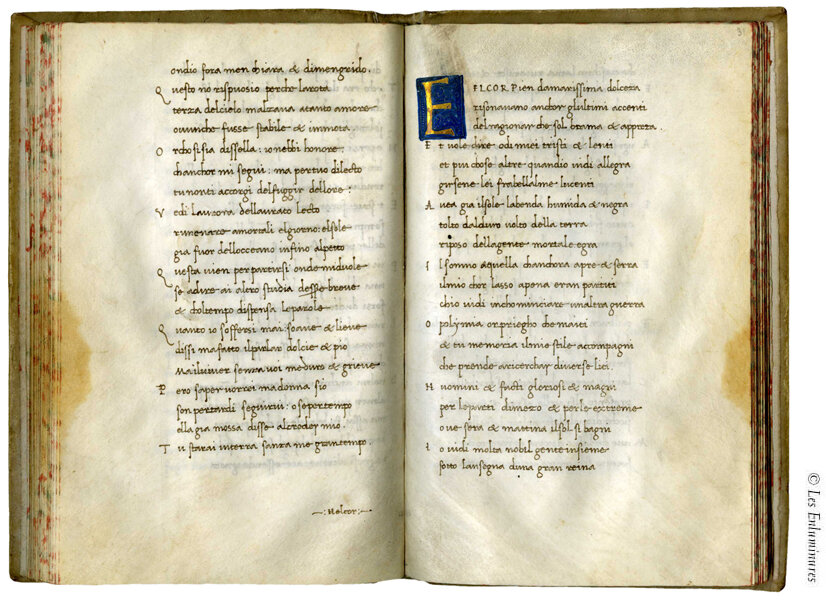 ondio fora men chiara & dimengrido.
Questo no rispuosio perche larota
terza delcielo malzava atanto amore
ovunche fusse stabile & inmota
Or chosi sia dissella: io nebbi honore
chanchor mi segui: ma pertuo dilecto
tu nonti accorgi delfuggir dellore:
Vedi laurora dellaurato lecto
rimenar a mortali elgiorno: elsole
gia fuor dellocceano infino alpecto
Questa vien per partirsi onde mi duole
se adire ai altro studia desse breve
& choltempo dispensa leparole
Quanto io soffersi mai soave & lieve
dissi mafatto ilparlar dolcie & pio
Mailviver senza voi me duro & grieve
Pero saper vorrei madonna sio
son pertardi seguirvi: o sepertempo
ella gia mossa disse alcreder mio
Tu starai interra sanza me gran tempo.
Nelcor:
31
E
ELCOR Pien damarissima dolceza
risonavano anchor glultimi accenti
delragionar che sol brama & appreza.
Et vole dire odi miei tristi & lenti
et piu chose altre quandio vidi allegra
girsene lei fra bellalme lucenti
Avea gia ilsole labenda humida & negra
tolto dalduro volto della terra
riposo dellagente mortale egra
Il sonno aquella chanchora apre & serra
ilmio chor lasso apena eran partiti
chio vidi inchominciare unaltra guerra
O polymia or priegho che maiti
& tu memoria ilmio stile accompagni
che prende aricerchar diverse liti.
Huomini & facti gloriosi & magni
per leparti dimezo & perle extreme
ove sera & mattina ilsol si bagni
Io vidi molta nobil gente insieme
sotto lansegna duna gran reina
© Les Enluminures